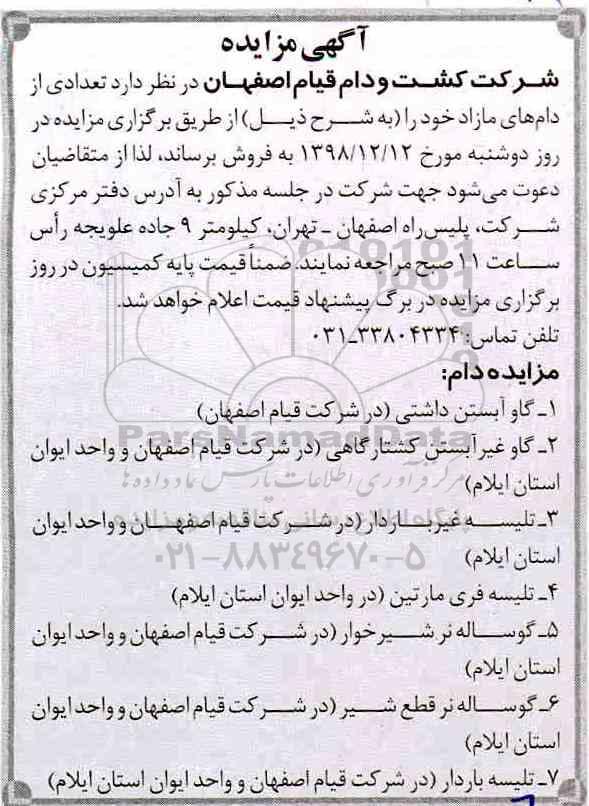 آگهی مزایده
شرکت کشت و دام قیام اصفهان در نظر دارد تعدادی از
دام‌های مازاد خود را (به شرح ذیل) از طریق برگزاری مزایده در
روز دوشنبه مورخ ۱۳۹۸/۱۲/۱۲ به فروش برساند، لذا از متقاضیان
دعوت می‌شود جهت شرکت در جلسه مذکور به آدرس دفتر مرکزی
شرکت، پلیس‌راه اصفهان ـ تهران، کیلومتر ۹ جاده علویجه رأس
ساعت ۱۱ صبح مراجعه نمایند. ضمناً قیمت پایه کمیسیون در روز
برگزاری مزایده در برگ پیشنهاد قیمت اعلام خواهد شد.
تلفن تماس: ۳۳۸۰۴۳۳۴-۰۳۱
مزایده دام:
۱ـ گاو آبستن داشتی (در شرکت قیام اصفهان)
ParsNamadData
۲ـ گاو غیر آبستن کشتارگاهی (در شرکت قیام اصفهان و واحد ایوان
استان ایلام)
مرکز فرآوری اطلاعات پارس نماد داده‌ها
۳ـ تلیسه غیر باردار (در شرکت قیام اصفهان و واحد ایوان
استان ایلام)
۰۲۱-۸۸۳۴۹۶۷۰-۵
۴ـ تلیسه فری مارتین (در واحد ایوان استان ایلام)
۵ـ گوساله نر شیرخوار (در شرکت قیام اصفهان و واحد ایوان
استان ایلام)
۶ـ گوساله نر قطع شیر (در شرکت قیام اصفهان و واحد ایوان
استان ایلام)
۷ـ تلیسه باردار (در شرکت قیام اصفهان و واحد ایوان استان ایلام)